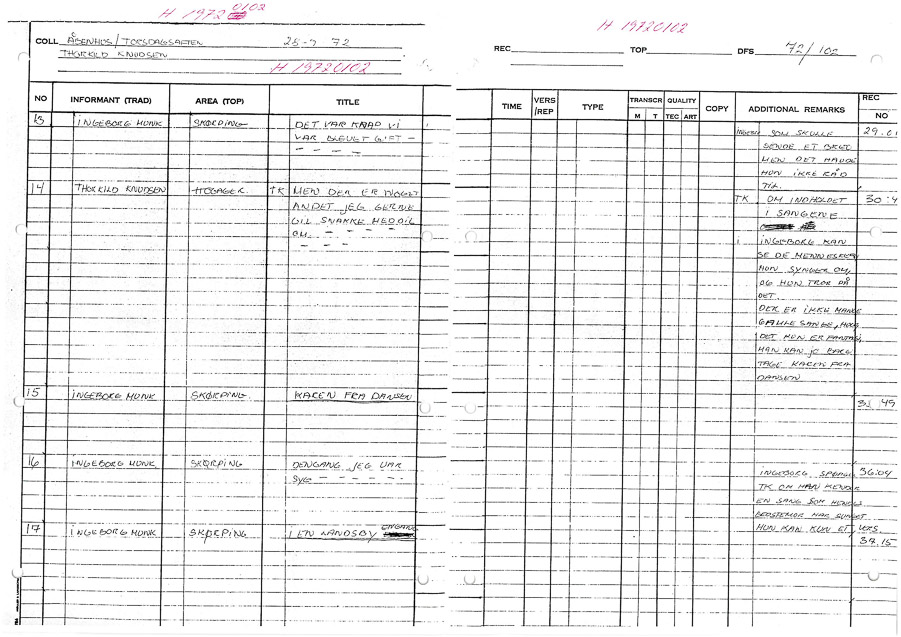 H 1972 0102
COLL ÅBENHUS/TORSDAGSAFTEN 25-7 72
THORKILD KNUDSEN
H 19720102
NO INFORMANT (TRAD) AREA (TOP) TITLE
13 INGEBORG MUNK SKØRPING DET VAR KNAP VI
VAR BLEVET GIFT –
– – – – –
14 THORKILD KNUDSEN HØGAGER TK MEN DER ER NOGET
ANDET JEG GERNE
VIL SNAKKE MED DIG
OM. – – – – –
– – – –
15 INGEBORG MUNK SKØRPING KAREN FRA DANSEN
16 INGEBORG MUNK SKØRPING DENGANG JEG VAR
SYG – – – – – –
17 INGEBORG MUNK SKØRPING I EN LANDSBY ENGANG
H 19720102
REC TOP DFS 72/102
TIME VERS/REP TYPE TRANSCR M T QUALITY TEC ART COPY ADDITIONAL REMARKS REC NO
SOM SKULLE 29.01
SENDE ET
MEN DET HAVDE
HUN IKKE RÅD
TIL.
TK OM INDHOLDET 30.4
I SANGENE
i INGEBORG KAN
SE DE MENNESKER
HUN SYNGER OM,
OG HUN TROR PÅ
DET.
DER ER IKKE MANGE
GAMLE SANGE,
DET HUN ER
HAN KAN JO BARE
TAGE KAREN FRA
DANSEN
49
INGEBORG 36.04
TK OM HAN KENDER
EN SANG SOM HENDES
BEDSTEMOR HAR SUNGET
HUN KAN KUN ET VERS.
37.15